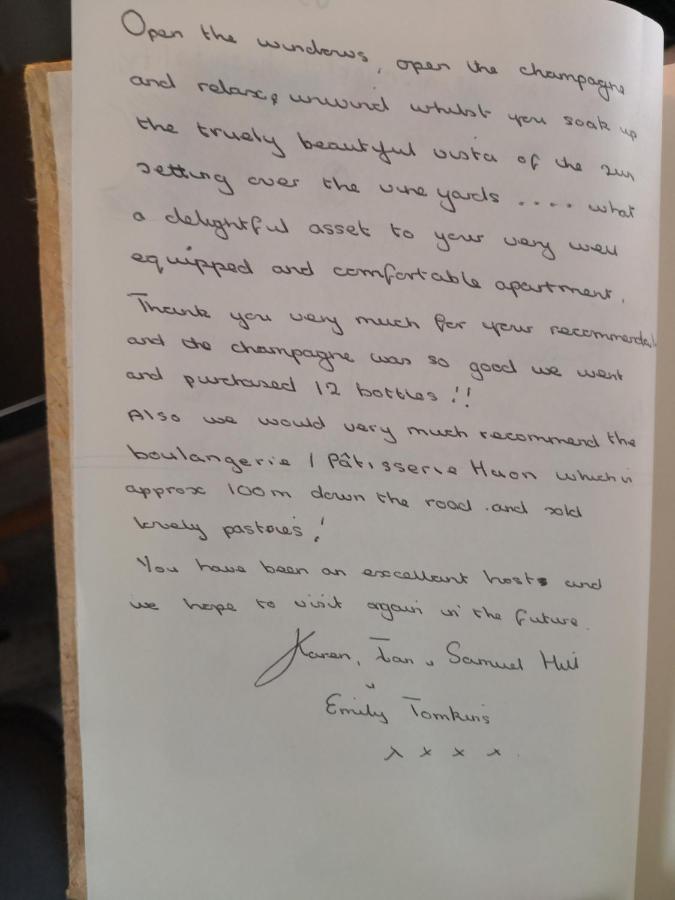 Open the windows, open the champagne
and relax, unwind whilst you soak up
the truely beautiful vista of the sun
setting over the vine yards .... what
a delightful asset to your very well
equipped and comfortable apartment.
Thank you very much for your recommendat
and the champagne was so good we went
and purchased 12 bottles !!
Also we would very much recommend the
boulangerie / Pâtisserie Huon which is
approx 100m down the road .and sold
lovely pastries!
You have been an excellent hosts and
we hope to visit again in the future.
Karen, Ian & Samuel Hill
&
Emily Tomkins
x x x x